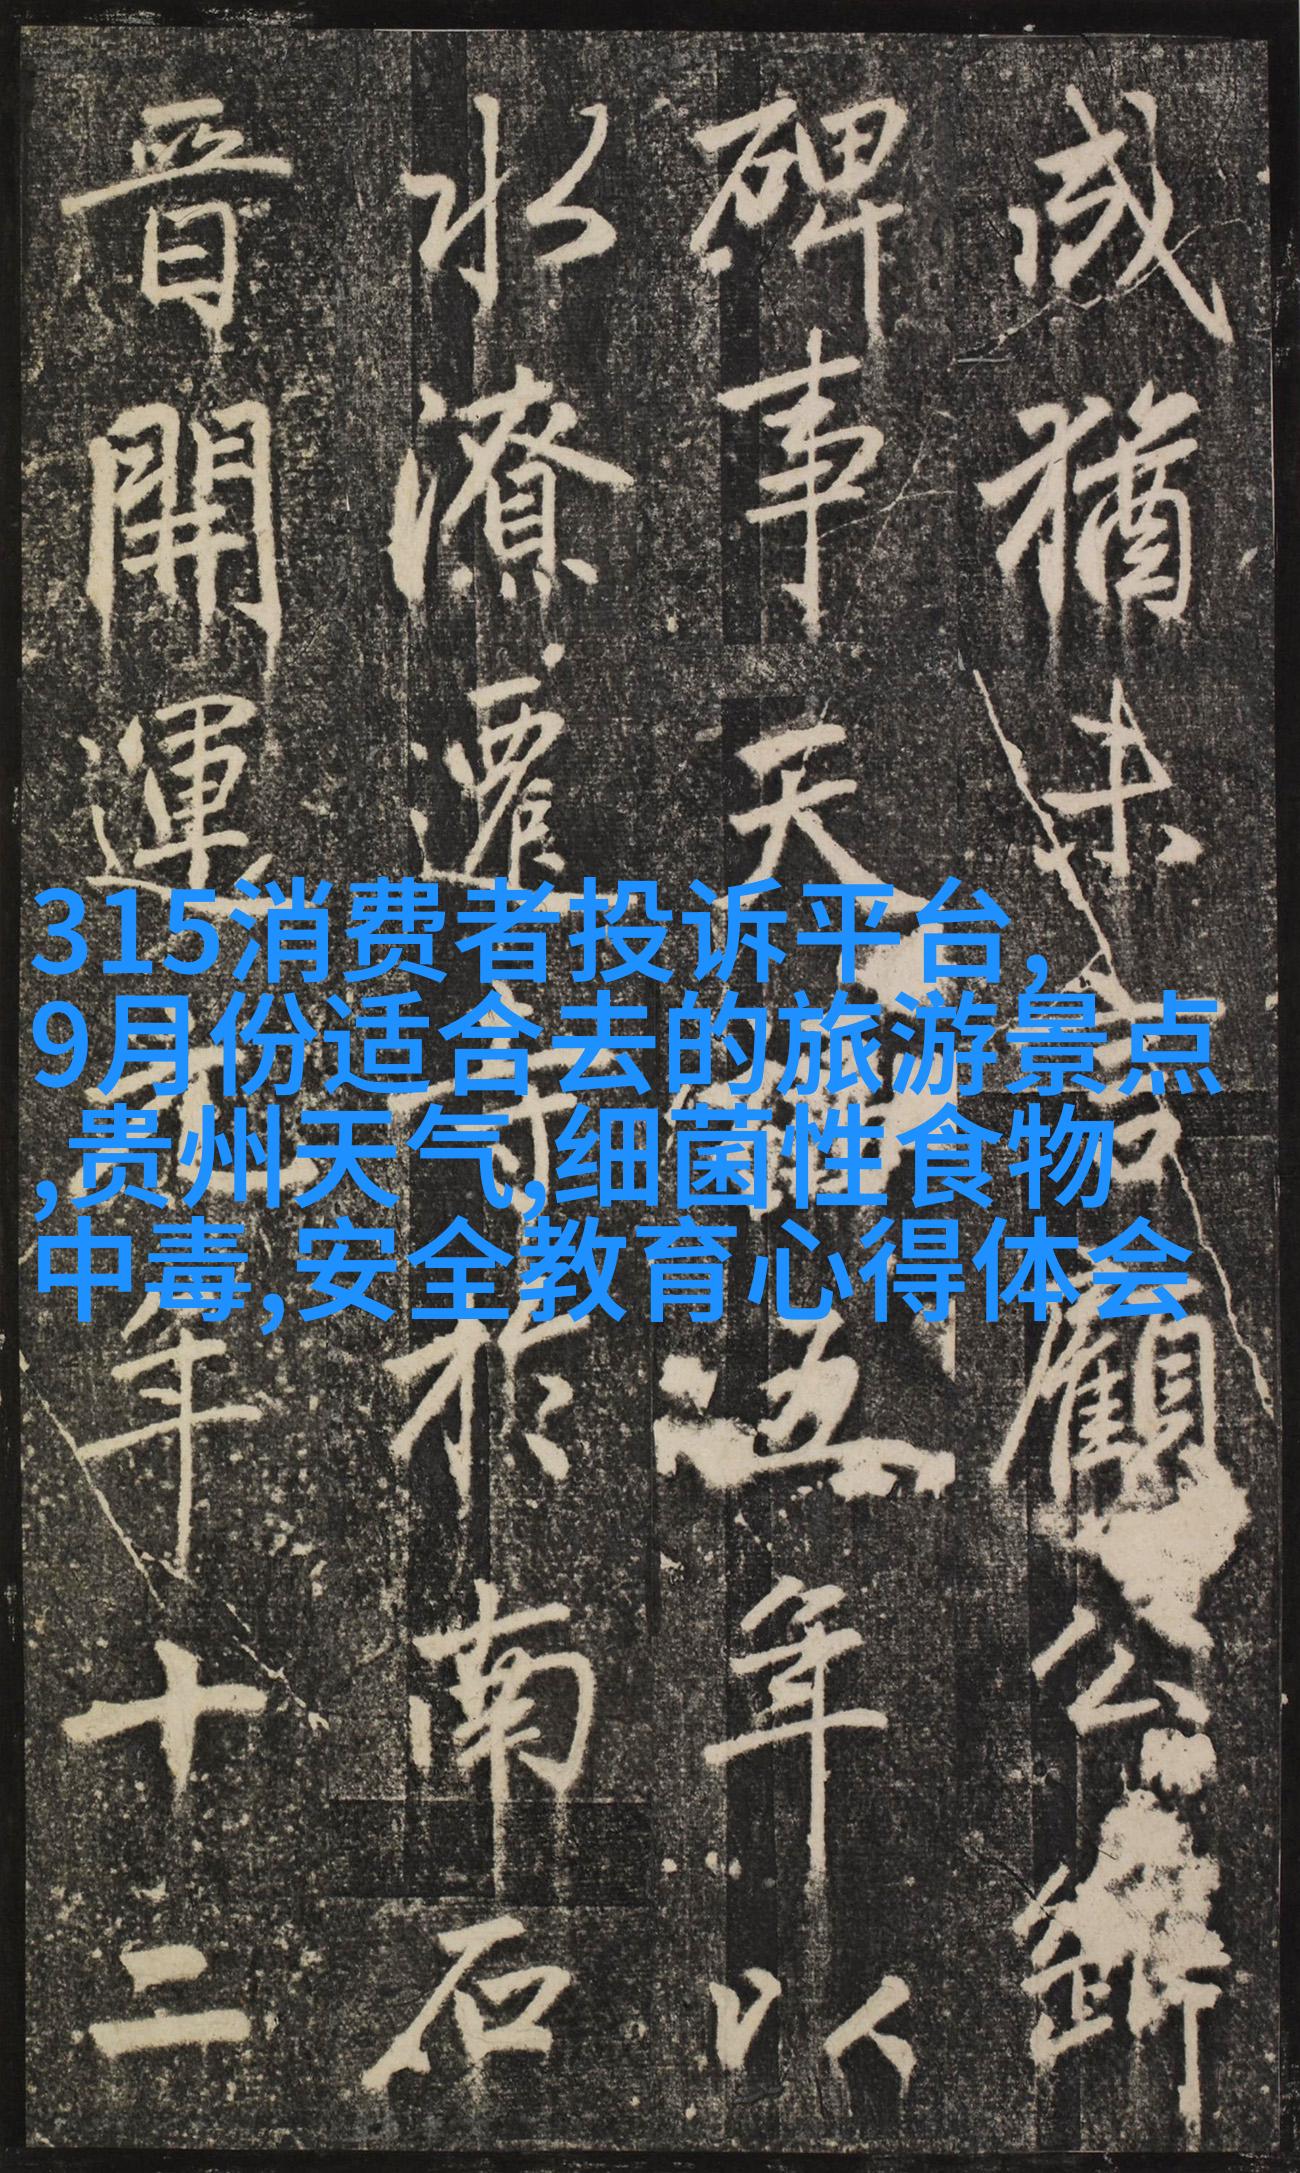 猶未顧公
碑事天五年以
水潦遷寺於南石
晉開運元年十二
315消费者投诉平台,
9月份适合去的旅游景点
,贵州天气,细菌性食物
中毒,安全教育心得体会